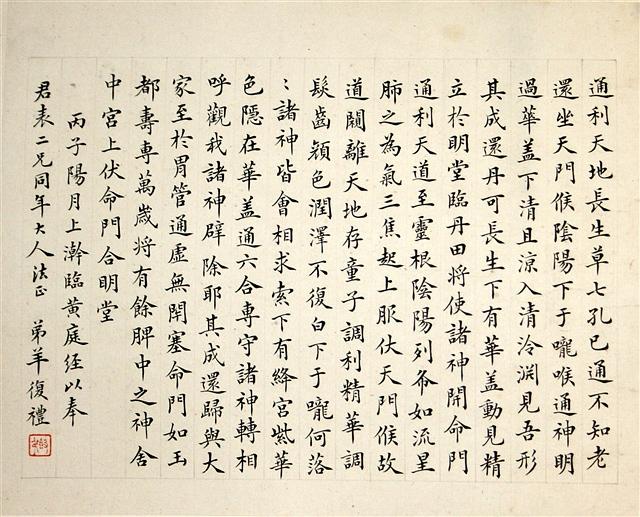 通利天地長生草七孔已通不知老
還坐天門候陰陽下于嚨喉通神明
過華蓋下清且涼入清泠淵見吾形
其成還丹可長生下有華蓋動見精
立於明堂臨丹田將使諸神開命門
通利天道至靈根陰陽列布如流星
肺之為氣三焦起上服伏天門候故
道闚離天地存童子調利精華調
髮齒顏色潤澤不復白下于嚨何落
：諸神皆會相求索下有絳宮紫華
色隱在華蓋通六合專守諸神轉相
呼觀我諸神辟除耶其成還歸與大
家至於胃管通虛無閉塞命門如玉
都壽專萬歲將有餘脾中之神舍
中宮上伏命門合明堂
丙子陽月上澣臨黃庭經以奉
君表二兄同年大人法正 弟羊復禮